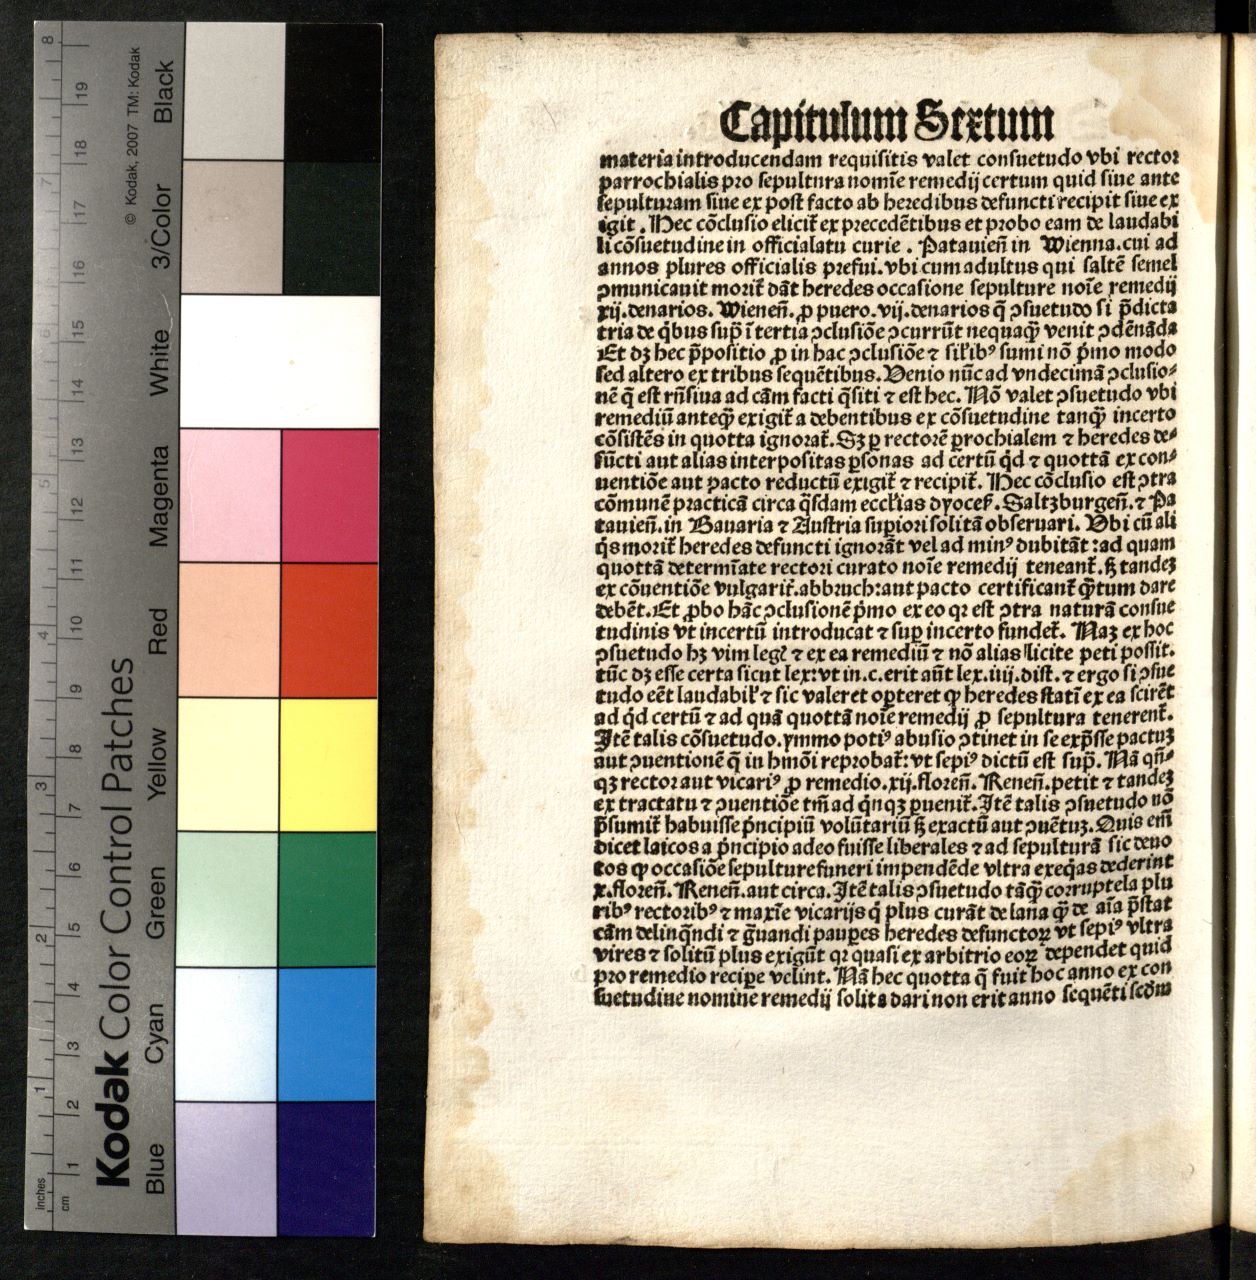 Capitulum Sextum
materia introducendam requisitis valet consuetudo vbi rector
parrochialis pro sepultnra nomīe remedij certum quid siue ante
sepulturam siue ex post facto ab heredibus defuncti recipit siue ex
igit . Hec cōclusio elicit̄ ex precedētibus et probo eam de laudabi
li cōsuetudine in officialatu curie . Patauien̄ in Wienna.cui ad
annos plures officialis prefui.vbi cum adultus qui saltē semel
ꝯmunicauit morit̄ dāt heredes occasione sepulture noīe remedij
xij.denarios. Wienen̄. ꝓ puero.vij.denarios q̄ ꝯsuetudo si p̄dicta
tria de qͥbus sup̄ ī tertia ꝯclusiōe ꝯcurrūt nequaqꝫ̄ venit ꝯdēnāda
Et dꝫ hec p̄positio ꝓ in hac ꝯclusiōe ⁊ sil̓ibꝰ sumi nō pͥmo modo
sed altero ex tribus sequētibus. Venio nūc ad vndecimā ꝯclusio⸗
nē q̄ est rn̄siua ad cām facti q̄siti ⁊ est hec. Nō valet ꝯsuetudo vbi
remediū anteqꝫ̄ exigit̄ a debentibus ex cōsuetudine tanqꝫ̄ incerto
cōsistēs in quotta ignorat̄. Sꝫ ꝑ rectorē ꝑrochialem ⁊ heredes de⸗
fūcti aut alias interpositas ꝑsonas ad certū qͥd ⁊ quottā ex con⸗
uentiōe aut pacto reductū exigit̄ ⁊ recipit̄. Hec cōclusio est ꝯtra
cōmunē practicā circa q̄sdam eccl̓ias dyoces̄. Saltzburgen̄. ⁊ Pa
tauien̄. in Bauaria ⁊ Austria suꝑiori solitā obseruari. Vbi cū ali
qͥs morit̄ heredes defuncti ignorāt vel ad minꝰ dubitāt : ad quam
quottā determīate rectori curato noīe remedij teneant̄. sꝫ tandeꝫ
ex cōuentiōe vulgarit̄.abbruch:aut pacto certificant̄ qͣtum dare
debēt. Et ꝓbo hāc ꝯclusionē pͥmo ex eo qꝛ est ꝯtra naturā consue
tudinis vt incertū introducat ⁊ suꝑ incerto fundet̄. Naꝫ ex hoc
ꝯsuetudo hꝫ vim legꝭ ⁊ ex ea remediū ⁊ nō alias licite peti possit.
tūc dꝫ esse certa sicut lex: vt in.c.erit aūt lex.iiij.dist. ⁊ ergo si ꝯsue
tudo eēt laudabil̓ ⁊ sic valeret oꝑteret ꝙ heredes statī ex ea scirēt
ad qͥd certū ⁊ ad quā quottā noīe remedij ꝓ sepultura tenerent̄.
Itē talis cōsuetudo.ymmo potiꝰ abusio ꝯtinet in se exp̄sse pactuꝫ
aut ꝯuentionē q̄ in hmōi reprobat̄: vt sepiꝰ dictū est sup̄. Nā qn̄⸗
qꝫ rector aut vicariꝰ ꝓ remedio.xij.floren̄. Renen̄. petit ⁊ tandeꝫ
ex tractatu ⁊ ꝯuentiōe tm̄ ad qͥnqꝫ ꝑuenit̄. Itē talis ꝯsuetudo nō
p̄sumit̄ habuisse pͥncipiū volūtariū sꝫ exactū aut ꝯuētuꝫ. Quis em̄
dicet laicos a pͥncipio adeo fuisse liberales ⁊ ad sepulturā sic deuo
tos ꝙ occasiōe sepulture funeri impendēde vltra exeqͥas dederint
x.floren̄. Renen̄. aut circa. Itē talis ꝯsuetudo tāqꝫ̄ corruptela plu
ribꝰ rectoribꝰ ⁊ maxīe vicarijs qͥ plus curāt de lana qꝫ̄ de aīa p̄stat
cām delinq̄ndi ⁊ gͣuandi pauꝑes heredes defunctoꝝ vt sepiꝰ vltra
vires ⁊ solitū plus exigūt qꝛ quasi ex arbitrio eoꝝ dependet quid
pro remedio reciꝑe velint. Nā hec quotta q̄ fuit hoc anno ex con
suetudine nomine remedij solita dari non erit anno sequēti scdm̄
Kodak Color Control Patches
© Kodak, 2007 TM: Kodak
Blue Cyan Green Yellow Red Magenta White 3/Color Black
inches 1 2 3 4 5 6 7 8
cm 1 2 3 4 5 6 7 8 9 10 11 12 13 14 15 16 17 18 19